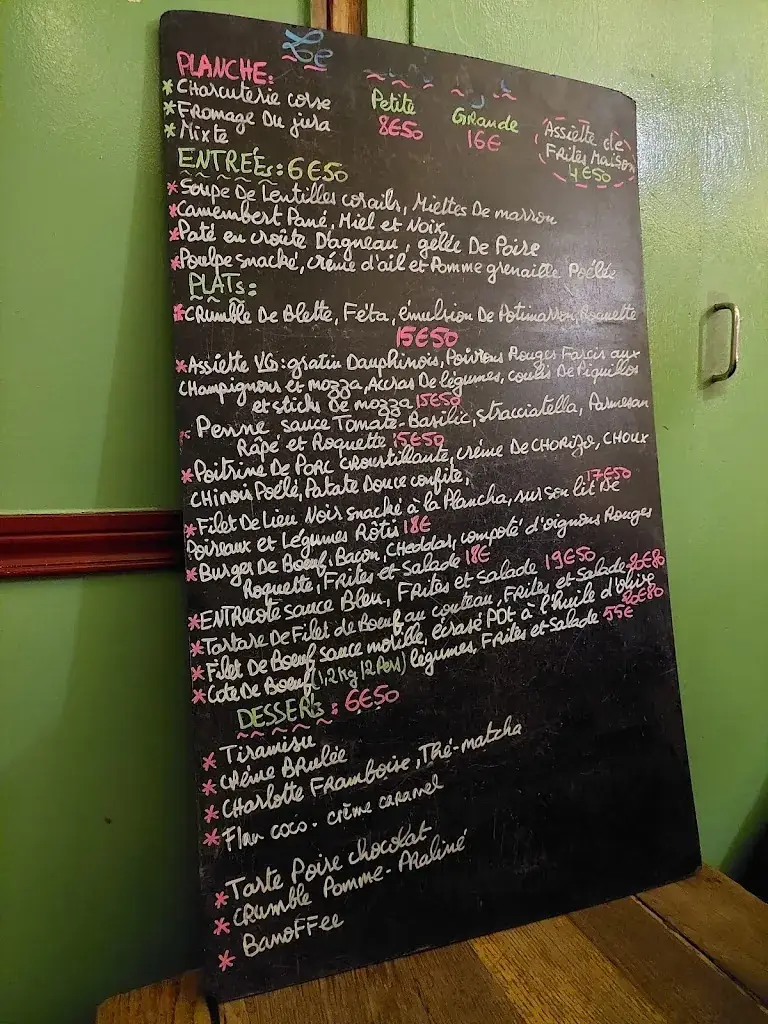 Le
PLANCHE:
* Charcuterie corse
* Fromage Du jura
* Mixte
Petite
8€50
Grande
16€
Assiette de
Frites Maison
4€50
ENTRÉEs: 6€50
* Soupe De Lentilles corails, Miettes De marron
* Camembert Pané, Miel et Noix
* Paté en croûte D'agneau, gelée De Poire
* Poulpe snacké, crème d'ail et Pomme grenaille Poêlée
PLATs:
* Crumble De Blette, Féta, émulsion De Potimarron, Roquette
15€50
* Assiette VG: gratin Dauphinois, Poivrons Rouges Farcis aux
Champignons et mozza, Accras De légumes, coulis De Piquillos
et sticks de mozza 15€50
* Penne sauce Tomate-Basilic, stracciatella, Parmesan
Râpé et Roquette 15€50
* Poitrine De Porc croustillante, crème De CHORIZO, CHOUX
CHinois Poêlé, Patate Douce confite, 17€50
* Filet De Lieu Noir snacké à la Plancha, sur son lit De
Poireaux et Légumes Rôtis 18€
* Burger De Boeuf, Bacon, Cheddar, compoté d'oignons Rouges
Roquette, Frites et salade 18€
* ENTRecote sauce Bleu, Frites et salade 19€50
* Tartare De Filet de Boeuf au couteau, Frites et Salade 20€80
* Filet De Boeuf sauce morille, écrasé PDt à l'huile d'olive 20€80
* Cote De Boeuf (1,2 Kg / 2 Pers) légumes, Frites et Salade 55€
DESSERTs: 6€50
* Tiramisu
* Crème Brulée
* CHarlotte Framboise, Thé-matcha
* Flan coco - crème caramel
* Tarte Poire chocolat
* Crumble Pomme-Praliné
* BanoFFee